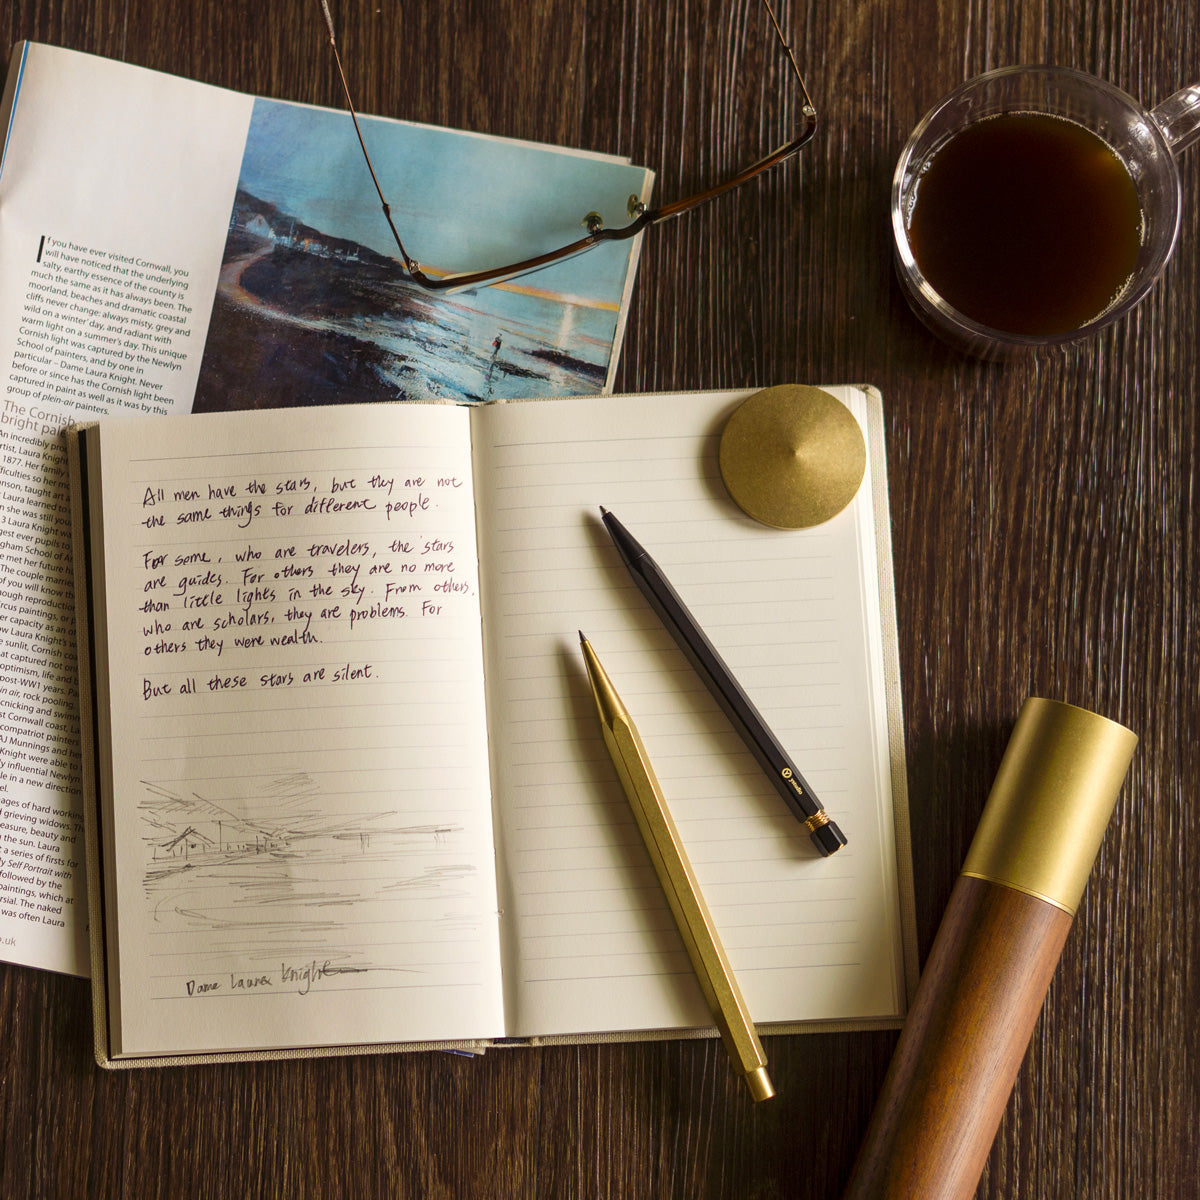 If you have ever visited Cornwall, you
will have noticed that the underlying
salty, earthy essence of the county is
much the same as it has always been. The
moorland, beaches and dramatic coastal
cliffs never change: always misty, grey and
wild on a winter' day, and radiant with
warm light on a summer's day. This unique
Cornish light was captured by the Newlyn
School of painters, and by one in
particular – Dame Laura Knight. Never
before or since has the Cornish light been
captured in paint as well as it was by this
group of plein-air painters.
The Cornish
bright
An incredibly
Laura Knight
1877. Her family
so her
taught art
Laura learned to
she was still
3 Laura Knight
ever pupils to
School of
met her future
The couple married
of you will know
reproduction
paintings, or
capacity as an
Laura Knight's
sunlit, Cornish
captured not only
optimism, life and
post-WW1 years.
in air, rock pooling,
and
Cornwall coast,
compatriot painters
AJ Munnings and
Knight were able to
influential Newlyn
in a new direction
of hard working
grieving widows.
beauty and
the sun. Laura
a series of firsts for
Self Portrait with
followed by the
paintings, which at
The naked
was often Laura
.uk
All men have the stars, but they are not
the same things for different people.
For some, who are travelers, the stars
are guides. For others they are no more
than little lights in the sky. From others,
who are scholars, they are problems. For
others they were wealth.
But all these stars are silent.
Dame Laura Knight
ystudio